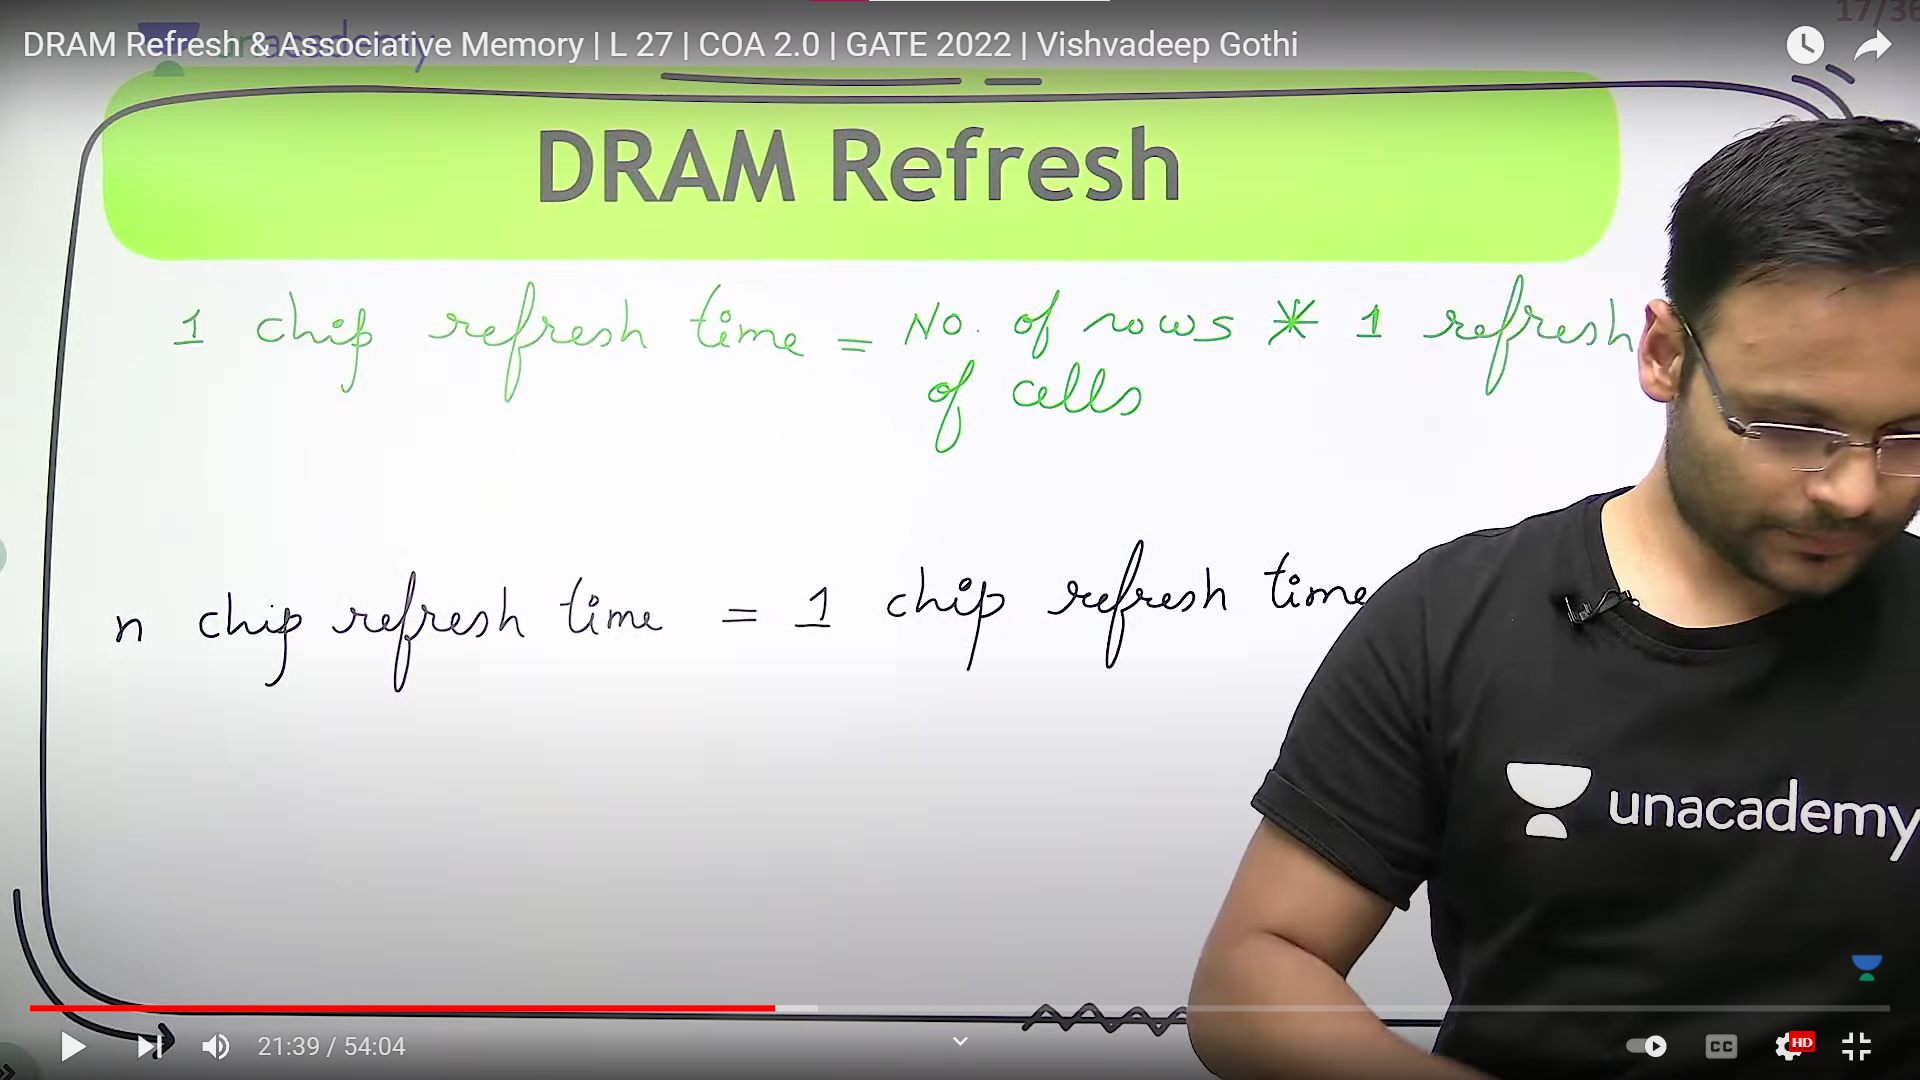 17/36
unacademy
DRAM Refresh & Associative Memory | L 27 | COA 2.0 | GATE 2022 | Vishvadeep Gothi
DRAM Refresh
1 chip refresh time = No. of rows * 1 refresh
of cells
n chip refresh time = 1 chip refresh time
unacademy
21:39 / 54:04
CC
HD